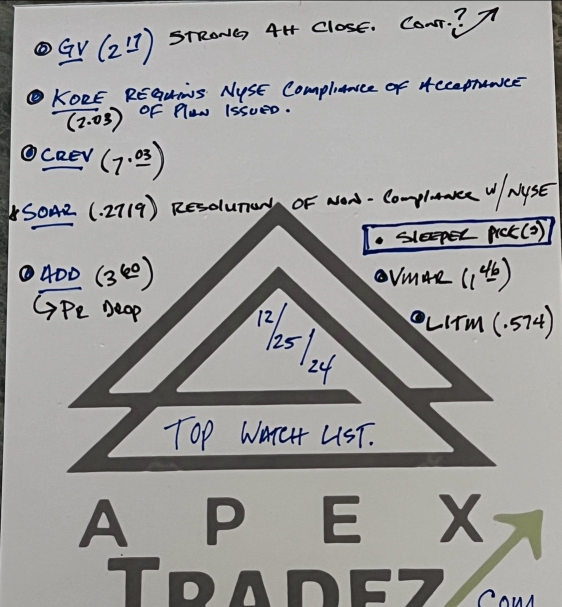 GV (2 17) STRONG AH CLOSE. CONT.?
KORE REGAINS NYSE COMPLIANCE OF ACCEPTANCE
(2.03) OF PLAN ISSUED.
CREV (7.03)
SOAR (.2719) RESOLUTION OF NON-COMPLIANCE W/ NYSE
• SLEEPER PICK(S)
ADD (3 60)
VMAR (1 46)
PR DROP
LITM (.574)
12/25/24
TOP WATCH LIST.
APEX
TRADEZ
.COM